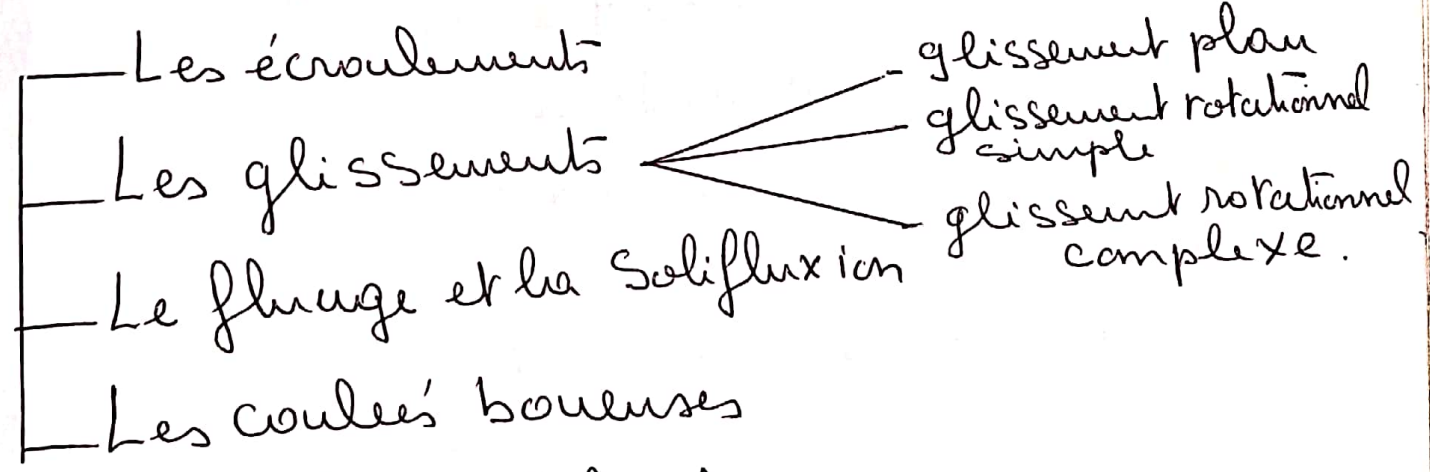 Les écroulements
Les glissements
glissement plan
glissement rotationnel
simple
glissement rotationnel
complexe.
Le fluage et la Solifluxion
Les coulées boueuses